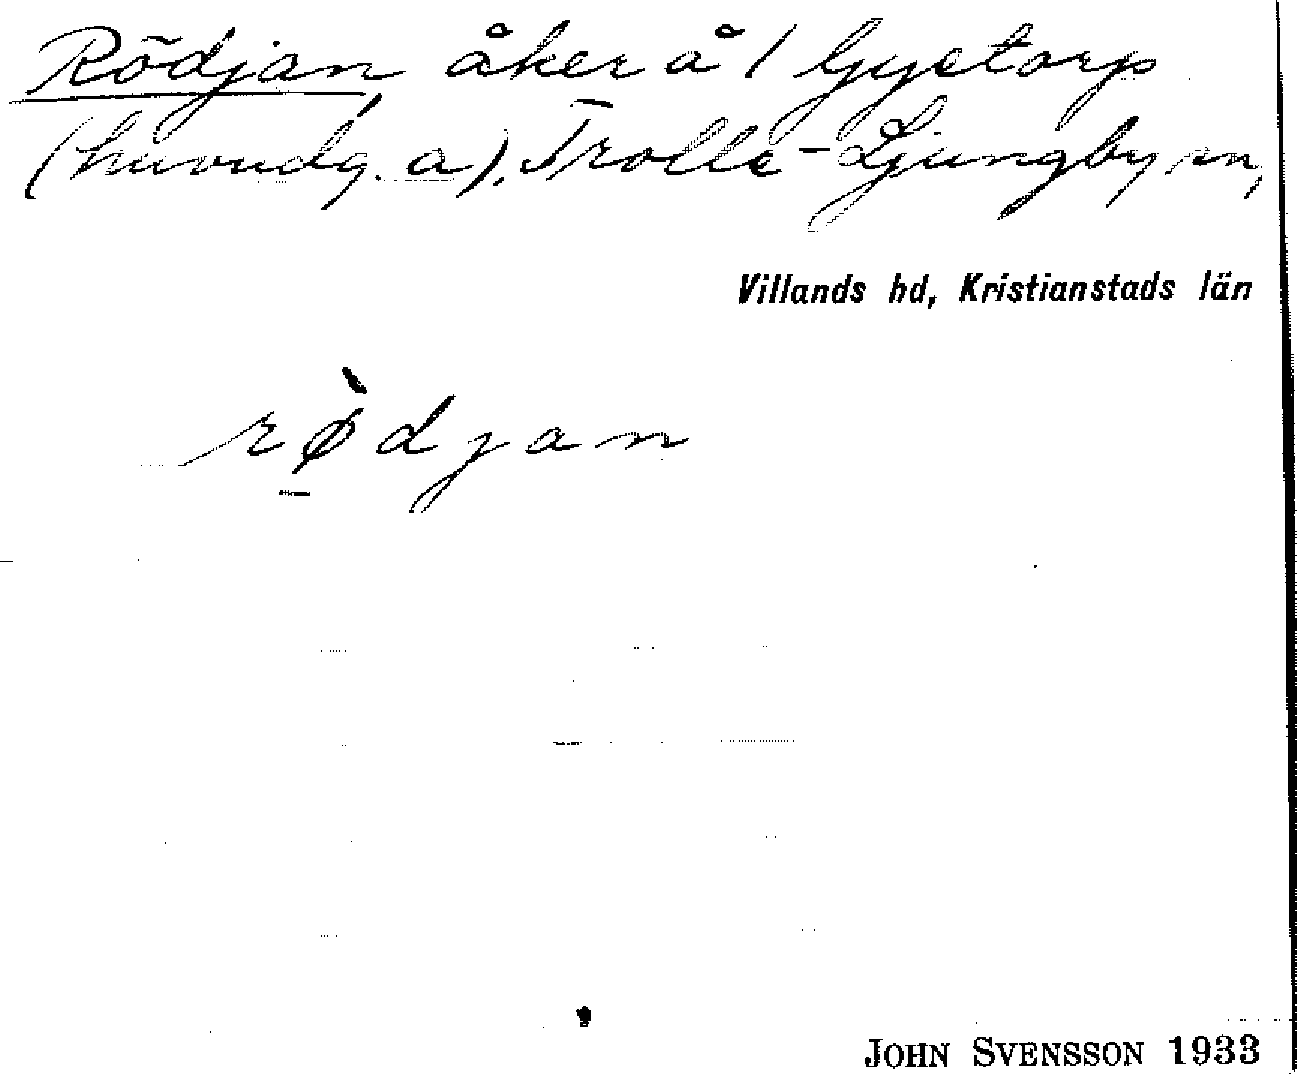 Rödjan åker å 1 Gyetorp
(huvudg. a), Trolle-Ljungby sn,
Villands hd, Kristianstads län
rø̀djan
JOHN SVENSSON 1933